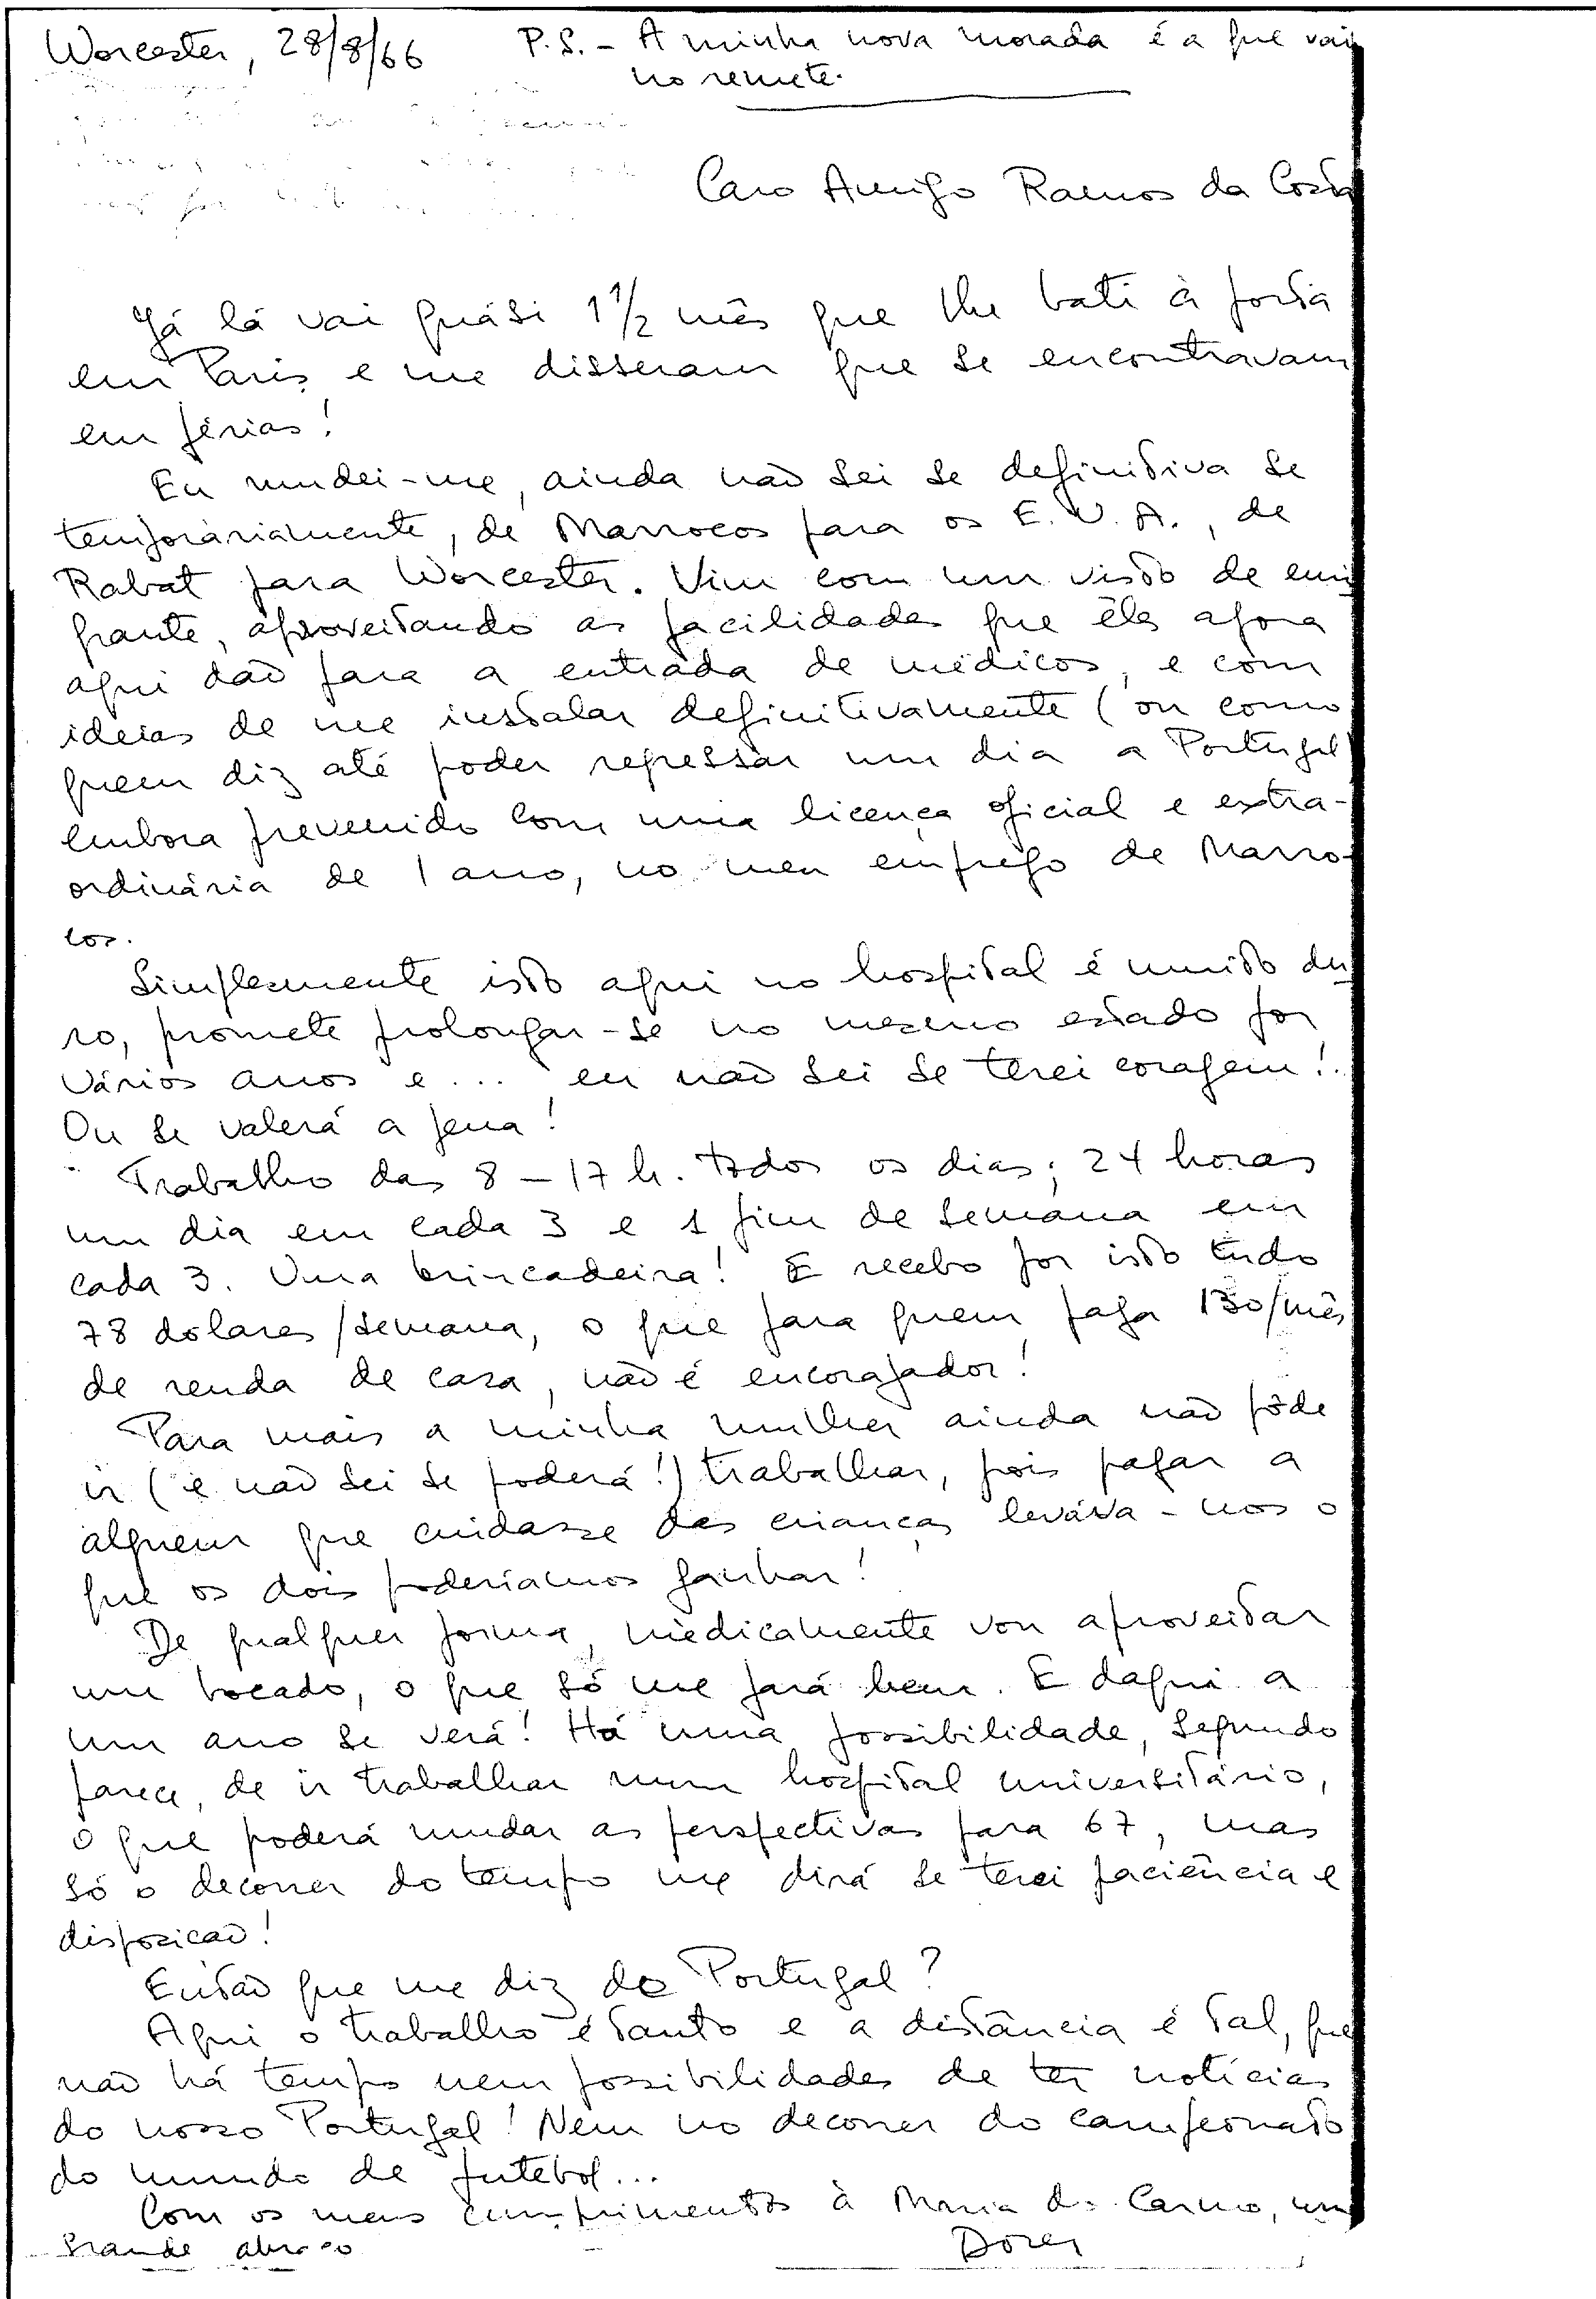 Worcester, 28/8/66
P.S. - A minha nova morada é a que vai
no remete.
Caro Amigo Ramos da Costa
Já lá vai quási 1 1/2 mês que lhe bati à porta
em Paris e me disseram que se encontravam
em férias!
Eu mudei-me, ainda não sei se definitiva se
temporàriamente, de Marrocos para os E. U. A., de
Rabat para Worcester. Vim com um visto de emi
grante, aproveitando as facilidades que êles agora
aqui dão para a entrada de médicos, e com
ideias de me instalar definitivamente (ou como
quem diz até poder regressar um dia a Portugal)
embora prevenido com uma licença oficial e extra-
ordinária de 1 ano, no meu emprego de Marro-
cos.
Simplesmente isto aqui no hospital é muito du
ro, promete prolongar-se no mesmo estado por
vários anos e... eu não sei se terei coragem!.
Ou se valerá a pena!
Trabalho das 8 - 17 h. todos os dias; 24 horas
um dia em cada 3 e 1 fim de semana em
cada 3. Uma brincadeira! E recebo por isto tudo
78 dolares/semana, o que para quem paga 130/mês
de renda de casa, não é encorajador!
Para mais a minha mulher ainda não pôde
ir (e não sei se poderá!) trabalhar, pois pagar a
alguem que cuidasse das crianças levava-nos o
que os dois poderiamos ganhar!
De qualquer forma, mèdicamente vou aproveitar
um bocado, o que só me fará bem. E daqui a
um ano se verá! Há uma possibilidade, segundo
parece, de ir trabalhar num hospital universitário,
o que poderá mudar as perspectivas para 67, mas
só o decorrer do tempo me dirá se terei paciência e
disposicão!
Então que me diz de Portugal?
Aqui o trabalho é tanto e a distância é tal, que
não há tempo nem possibilidades de ter notícias
do nosso Portugal! Nem no decorrer do campeonato
do mundo de futebol...
Com os meus cumprimentos à Maria do Carmo, um
grande abraço